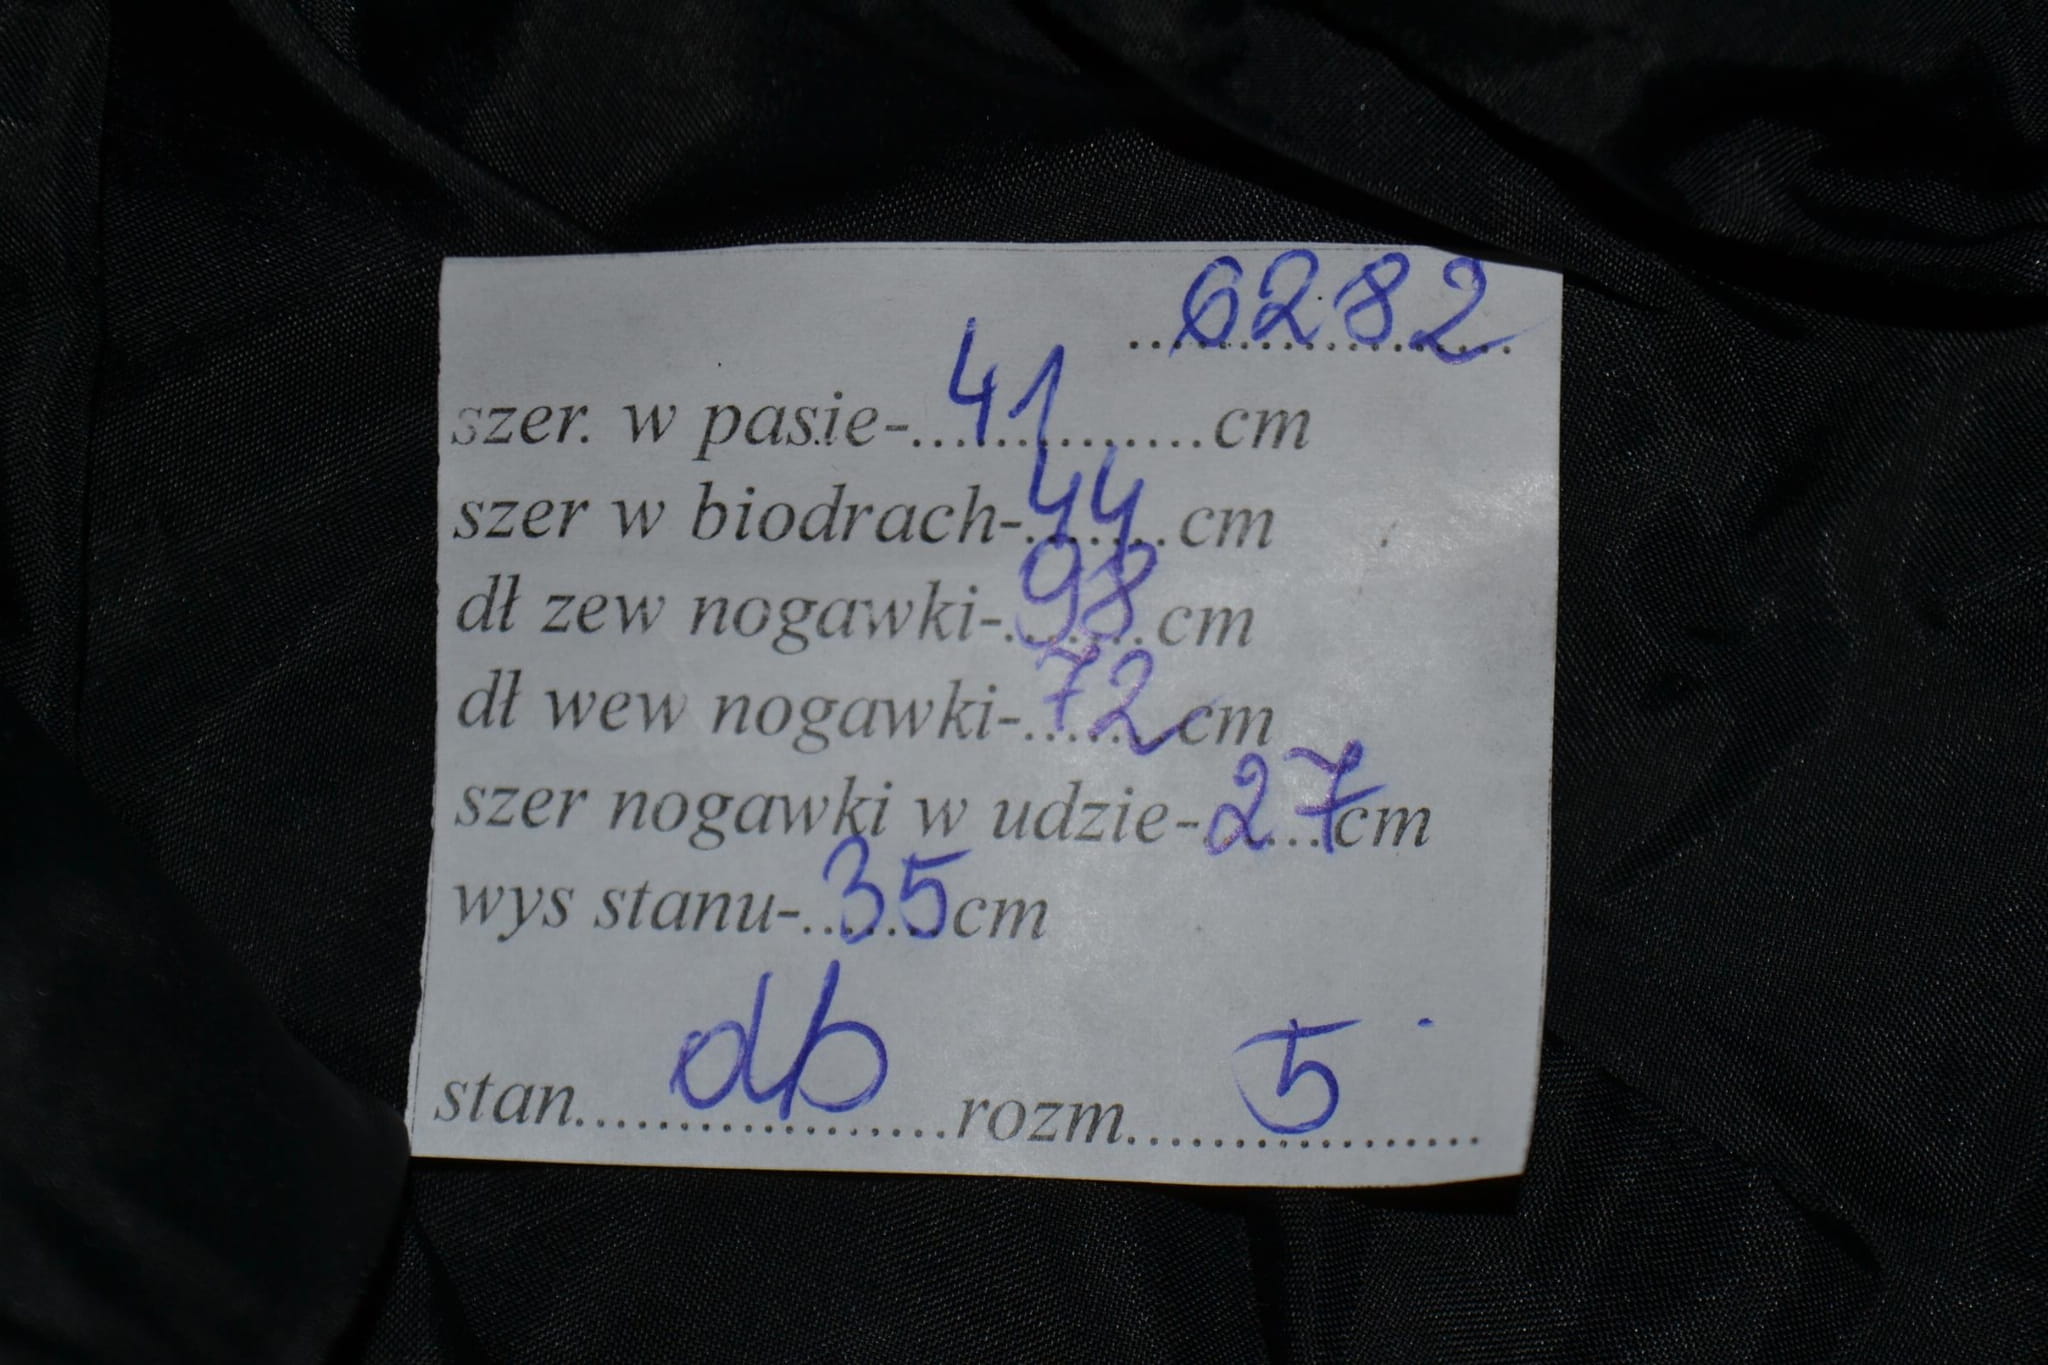 6282
szer. w pasie-41cm
szer w biodrach-44cm
dł zew nogawki-98cm
dł wew nogawki-72cm
szer nogawki w udzie-27cm
wys stanu-35cm
stan db rozm 5